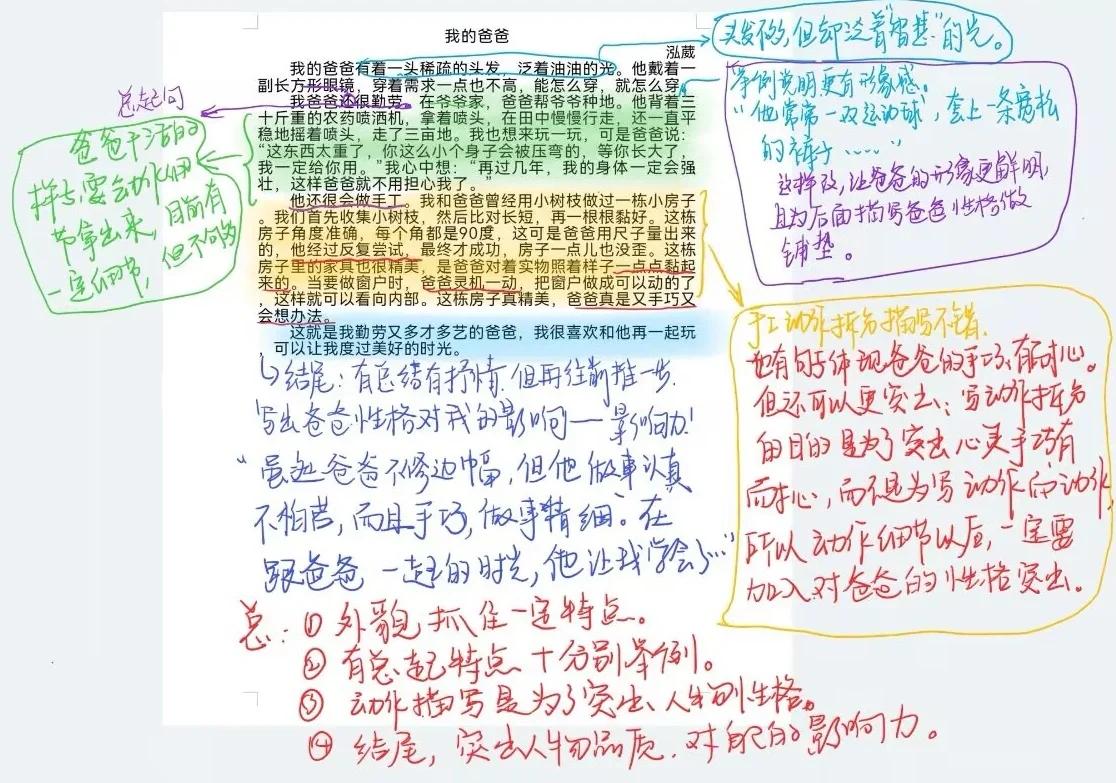 我的爸爸
泓葳
我的爸爸有着一头稀疏的头发，泛着油油的光。他戴着一
副长方形眼镜，穿着需求一点也不高，能怎么穿，就怎么穿。
我爸爸还很勤劳。在爷爷家，爸爸帮爷爷种地。他背着三
十斤重的农药喷洒机，拿着喷头，在田中慢慢行走，还一直平
稳地摇着喷头，走了三亩地。我也想来玩一玩，可是爸爸说：
“这东西太重了，你这么小个身子会被压弯的，等你长大了，
我一定给你用。”我心中想：“再过几年，我的身体一定会强
壮，这样爸爸就不用担心我了。”
他还很会做手工。我和爸爸曾经用小树枝做过一栋小房子
。我们首先收集小树枝，然后比对长短，再一根根黏好。这栋
房子角度准确，每个角都是90度，这可是爸爸用尺子量出来
的，他经过反复尝试，最终才成功，房子一点儿也没歪。这栋
房子里的家具也很精美，是爸爸对着实物照着样子一点点黏起
来的。当要做窗户时，爸爸灵机一动，把窗户做成可以动的了
，这样就可以看向内部。这栋房子真精美，爸爸真是又手巧又
会想办法。
这就是我勤劳又多才多艺的爸爸，我很喜欢和他再一起玩
，可以让我度过美好的时光。
头发不多，但却泛着“智慧”的光。
举例说明更有形象感。
“他常常一双运动球，套上一条宽松
的裤子……”
这样改，让爸爸的形象更鲜明，
且为后面描写爸爸性格做
铺垫。
总起句
爸爸干活的
样子，要会动作细
节拿出来，目前有
一定细节，但不够
手工动作拆分描写不错，
也有句子体现爸爸的手巧、有耐心。
但还可以更突出：写动作拆分
的目的是为了突出心灵手巧有
耐心，而不是为写动作而动作，
所以动作细节以后，一定要
加入对爸爸的性格突出。
结尾：有总结有抒情，但再往前推一步，
写出爸爸性格对我的影响——影响力！
“虽然爸爸不修边幅，但他做事认真
不怕苦，而且手巧，做事精细。在
跟爸爸一起的时光，他让我学会了…”
总：① 外貌抓住一定特点。
② 有总起特点＋分别举例。
③ 动作描写是为了突出人物性格。
④ 结尾，突出人物品质，对自己的影响力。